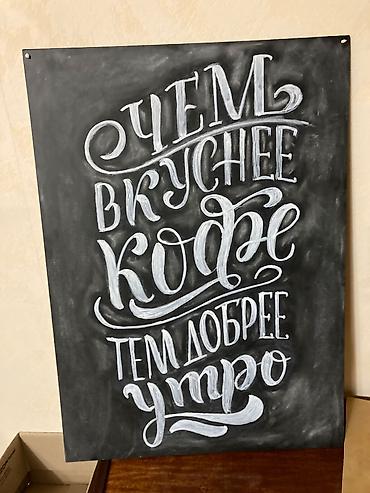 ЧЕМ
ВКУСНЕЕ
КОФЕ
ТЕМ ДОБРЕЕ
утро